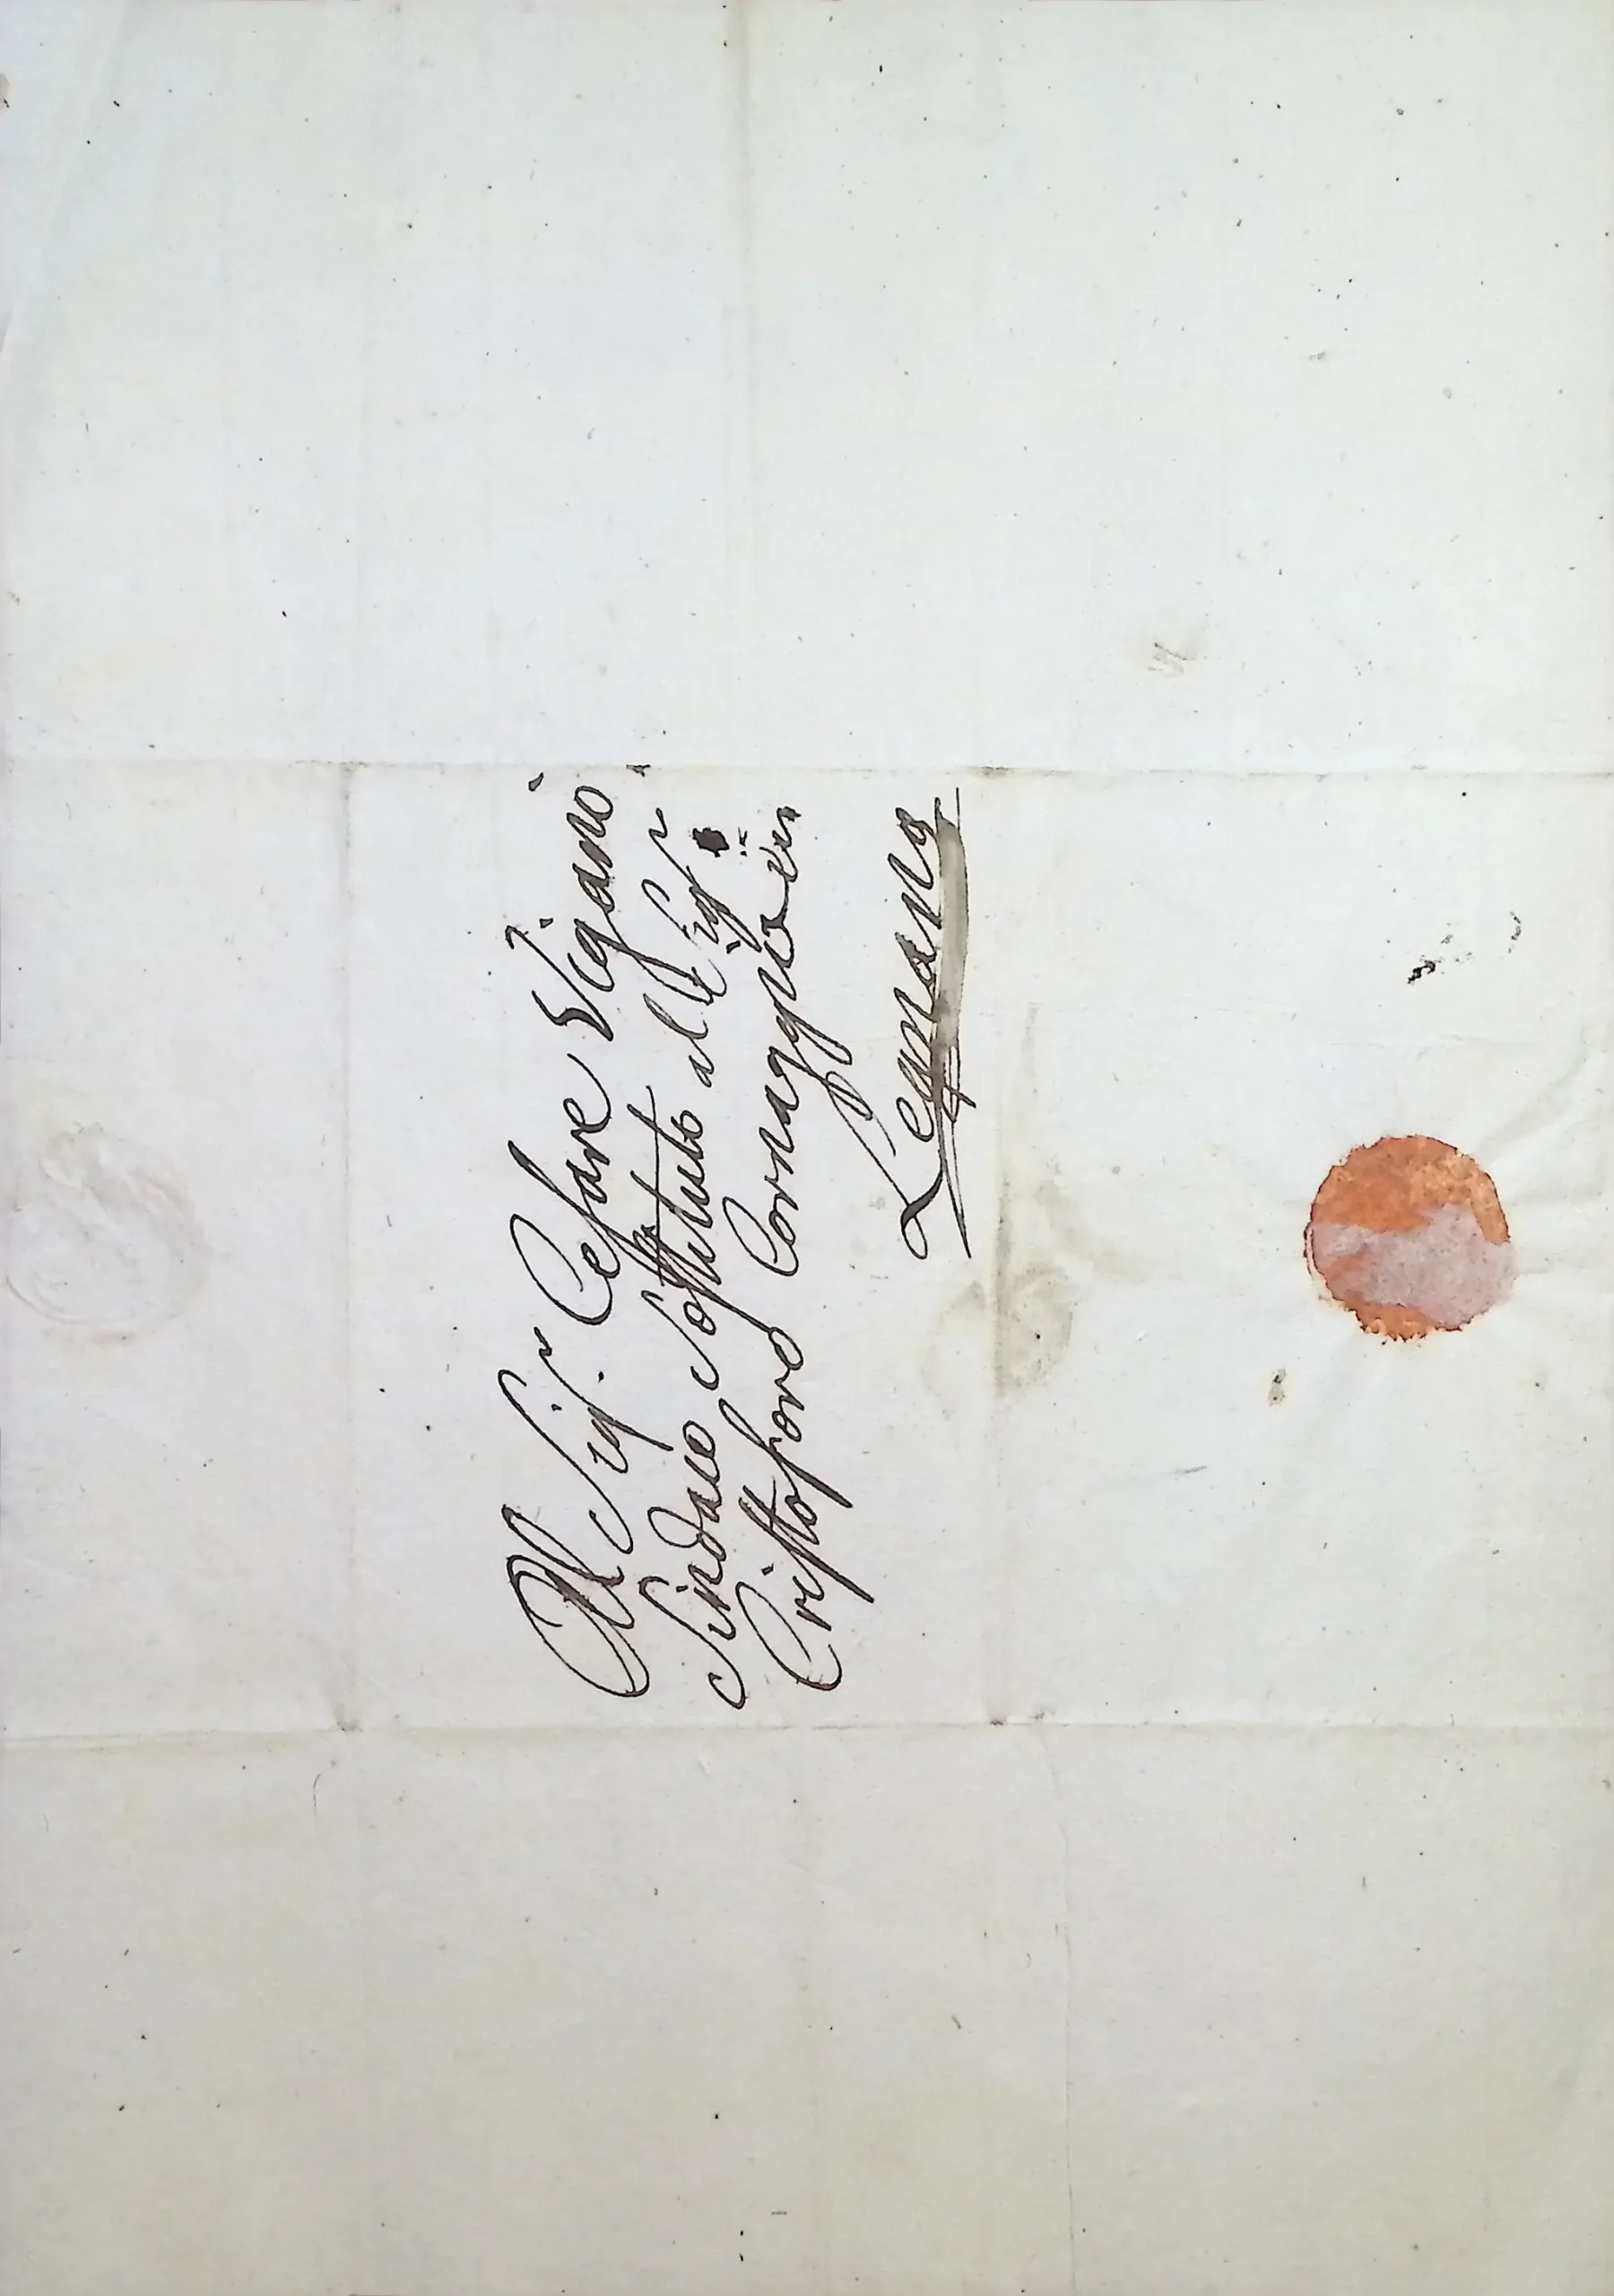 Al Sigr. Cesare Viganò
Sindaco Sostituto al Sigr
Cristoforo Cornaggia
Legnano